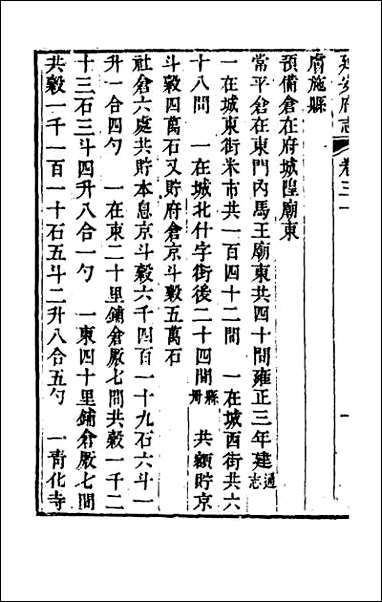 延安府志 卷三一 一
膚施縣
預備倉在府城隍廟東
常平倉在東門內馬王廟東共四十間雍正三年建通志
一在城東街米市共一百四十二間 一在城西街共六
十八間 一在城北什字街後二十四間縣冊 共額貯京
斗穀四萬石又貯府倉京斗穀五萬石
社倉六處共貯本息京斗穀六千四百一十九石六斗一
升一合四勺 一在東二十里鋪倉厫七間共穀一千二
十三石三斗四升八合一勺 一東四十里鋪倉厫七間
共穀一千一百一十石五斗二升八合五勺 一靑化寺